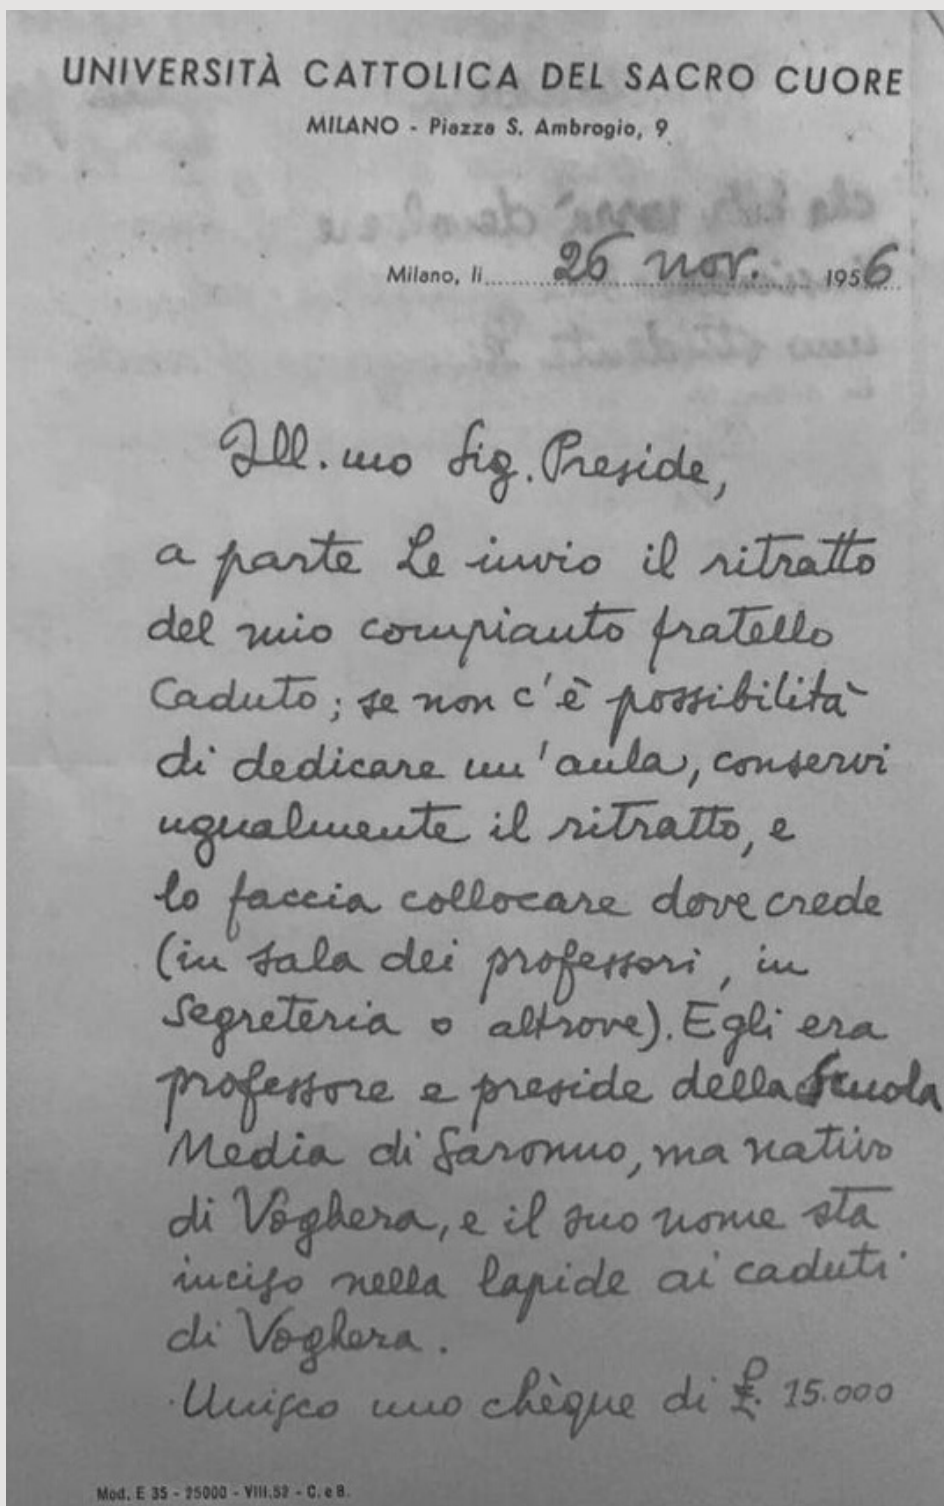 UNIVERSITÀ CATTOLICA DEL SACRO CUORE
MILANO - Piazza S. Ambrogio, 9
Milano, li 26 nov. 1956
Ill.mo Sig. Preside,
a parte Le invio il ritratto
del mio compianto fratello
Caduto; se non c'è possibilità
di dedicare un'aula, conservi
ugualmente il ritratto, e
lo faccia collocare dove crede
(in sala dei professori, in
Segreteria o altrove). Egli era
professore e preside della Scuola
Media di Saronno, ma nativo
di Voghera, e il suo nome sta
inciso nella lapide ai caduti
di Voghera.
Unisco uno chèque di £. 15.000
Mod. E 35 - 25000 - VIII.52 - C. e B.